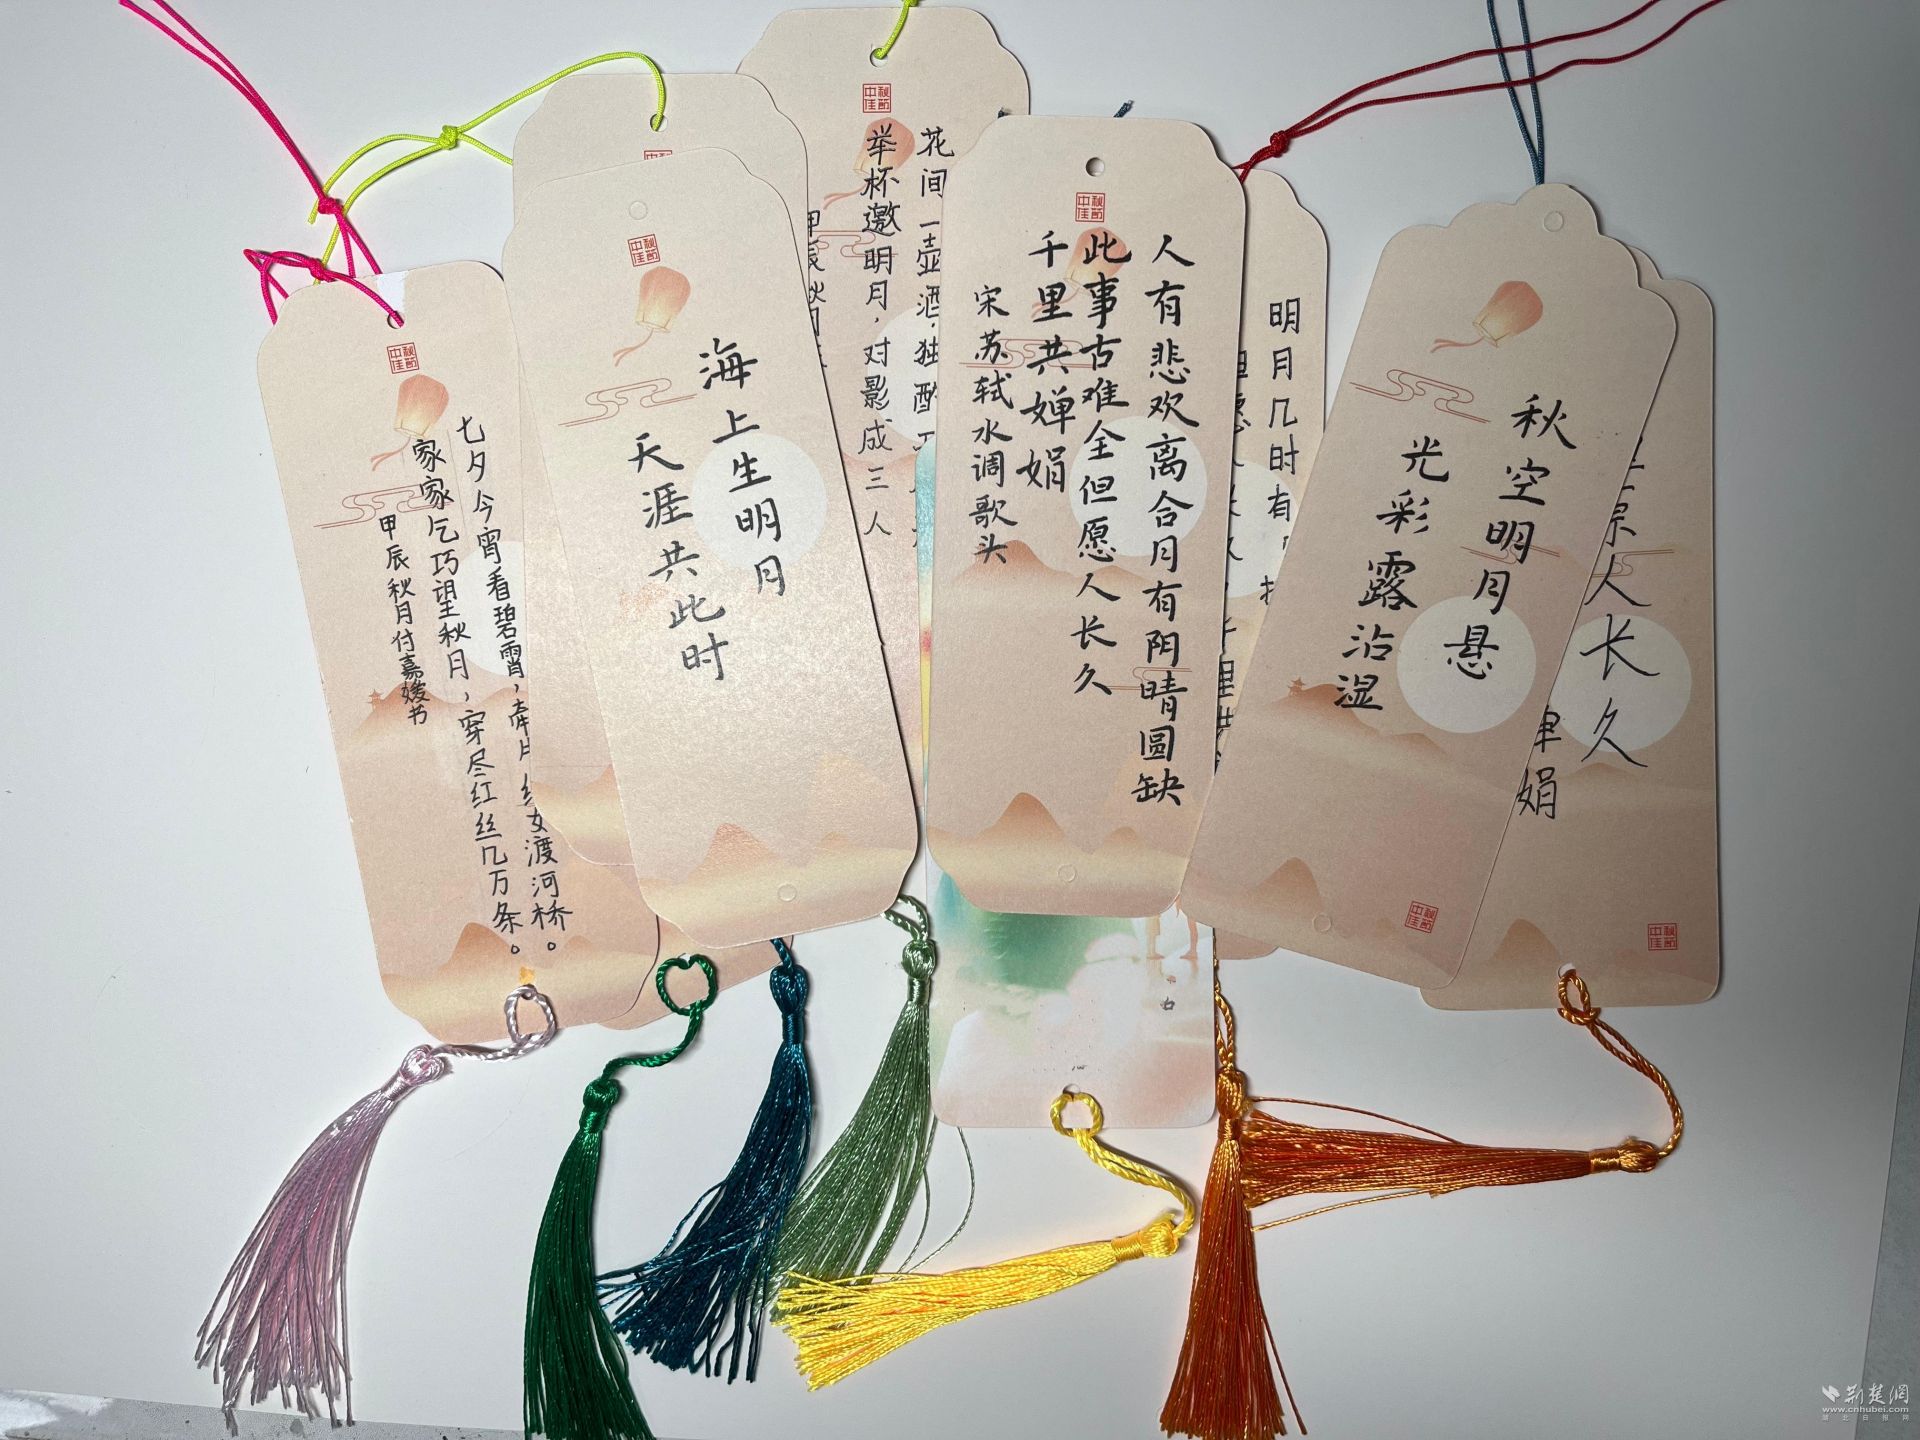 七夕今宵看碧霄，牵牛织女渡河桥。
家家乞巧望秋月，穿尽红丝几万条。
甲辰秋月付嘉媛书
中秋佳節
海上生明月
天涯共此时
中秋佳節
花间一壶酒，独酌
举杯邀明月，对影成三人
甲辰秋月
中秋佳節
人有悲欢离合月有阴晴圆缺
此事古难全但愿人长久
千里共婵娟
宋苏轼水调歌头
中秋佳節
明月几时有
里共
秋空明月悬
光彩露沾湿
中秋佳節
人长久
娟
中秋佳節
荆楚網
www.cnhubei.com
湖北日报网